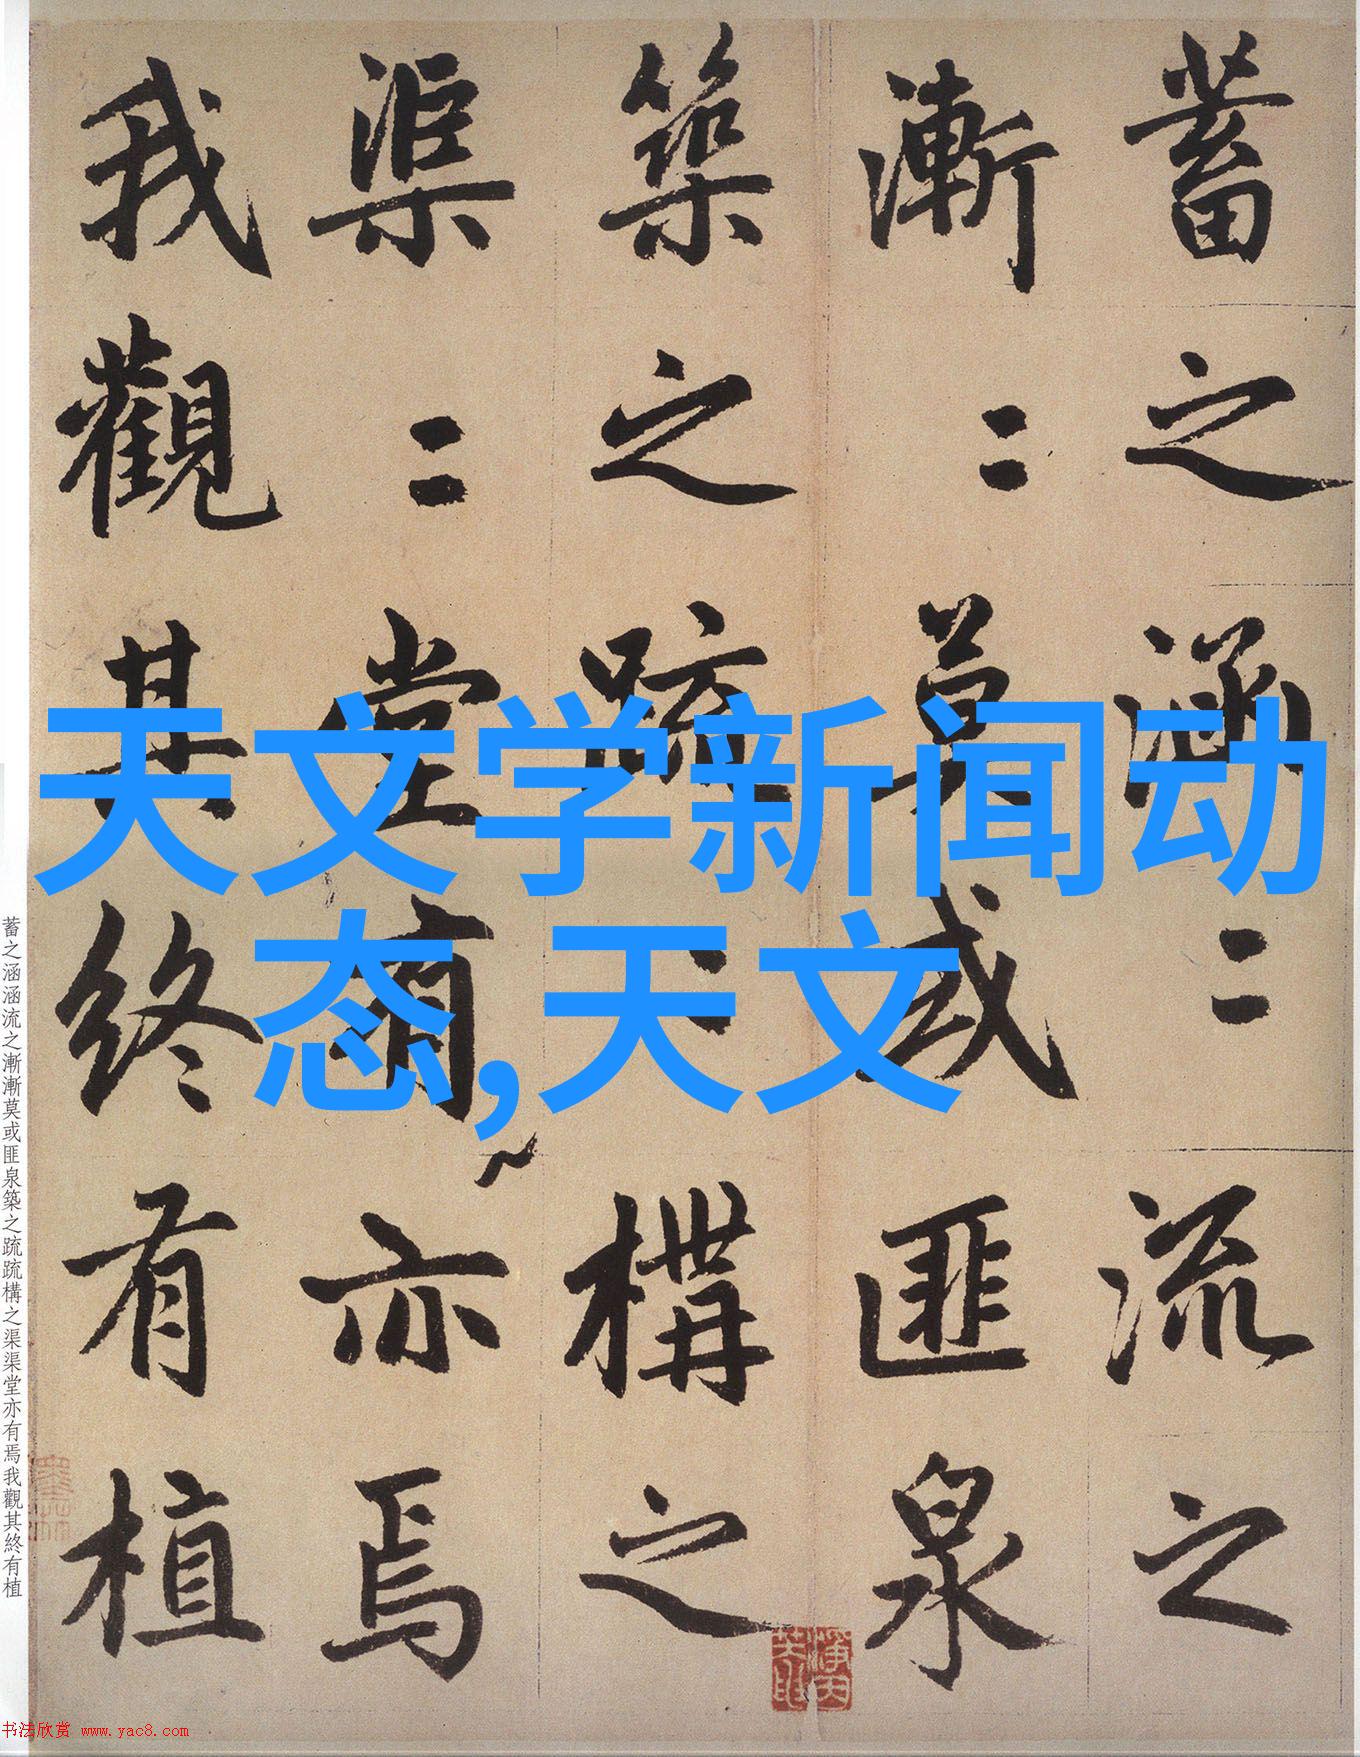 蓄之涵〻流之
漸〻莫或匪泉
築之疏〻構之
渠〻堂有亦焉
我觀其終有植
天文学新闻动
态,天文
蓄之涵涵流之漸漸莫或匪泉築之疏疏構之渠渠堂亦有焉我觀其終有植
书法欣赏 www.yac8.com